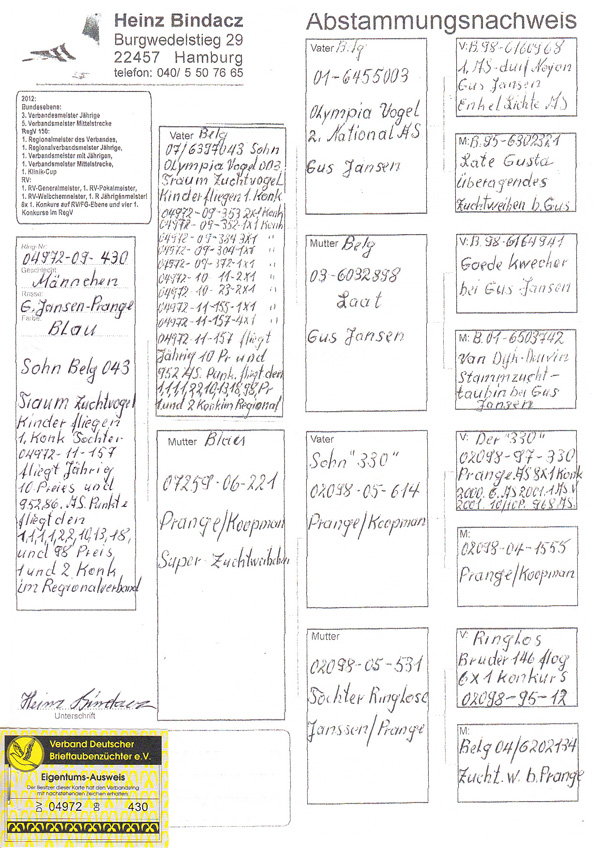 Heinz Bindacz
Burgwedelstieg 29
22457 Hamburg
telefon: 040/ 5 50 76 65
Abstammungsnachweis
2012:
Bundesebene:
3. Verbandesmeister Jährige
5. Verbandsmeister Mittelstrecke
RegV 150:
1. Regionalmeister des Verbandes,
1. Regionalverbandsmeister Jährige,
1. Verbandsmeister mit Jährigen,
1. Verbandsmeister Mittelstrecke,
1. Klinik-Cup
RV:
1. RV-Generalmeister, 1. RV-Pokalmeister,
1. RV-Weibchenmeister, 1. R Jährigenmeister!
8x 1. Konkurs auf RV/FG-Ebene und vier 1.
Konkurse im RegV
Ring-Nr.
04972-09-430
Geschlecht
Männchen
Rasse
G. Jansen-Prange
Farbe
Blau
Sohn Belg 043
Traum Zuchtvogel
Kinder fliegen
1. Konk Tochter
04972-11-157
fliegt Jährig
10 Preies und
952,86. AS. Punkte
fliegt den
1,1,1,1,2,2,10,13,18,
und 98 Preis,
1 und 2 Konk
im Regionalverband
Heinz Bindacz
Unterschrift
Vater Belg
07/6397043 Sohn
Olympia Vogel 003
Traum Zuchtvogel
Kinder fliegen 1. Konk
04972-09-353 2x1 Konk
04972-09-352-1x1 Konk
04972-09-384 3x1 "
04972-09-304-1x1 "
04972-09-372-1x1 "
04972-10 11-2x1 "
04972-10-23-2x1 "
04972-11-155-1x1 "
04972-11-157-4x1 "
04972-11-157 fliegt
Jährig 10 Pr und
952 AS. Punk. fliegt den
1,1,1,1,2,2,10,13,18,98, Pr
1 und 2 Konk im Regional
Mutter Blau
07259-06-221
Prange/Koopman
Super Zuchtweibchen
Vater Belg
01-6455003
Olympia Vogel
2. National AS
Gus Jansen
Mutter Belg
03-6032898
Laat
Gus Jansen
Vater
Sohn "330"
02098-05-614
Prange/Koopman
Mutter
02098-05-531
Tochter Ringlose
Janssen/Prange
V: B. 98-6160968
1, AS-duif Noyon
Gus Jansen
Enkel Lichte AS
M: B. 95-6302321
Late Gusta
überagendes
Zuchtweiben b. Gus
V: B. 98-6164941
Goede Kwecher
bei Gus Jansen
M: B. 01-6503742
Van Dijk-Dauvin
Stammzucht-
taubin bei Gus
Jansen
V: Der "330"
02098-97-330
Prange. AS 8x1 Konk
2000. 6. AS 2001. 1 AS V
2001. 10/10 P. 968 AS.
M:
02098-04-1555
Prange/Koopman
V: Ringlos
Bruder 146 flog
6x1 Konkurs
02098-95-12
M:
Belg 04/6202134
Zucht. w. b. Prange
Verband Deutscher
Brieftaubenzüchter e.V.
Eigentums-Ausweis
Der Besitzer dieser Karte hat den Verbandsring
mit nachstehenden Zeichen erhalten
DV 04972 09 430